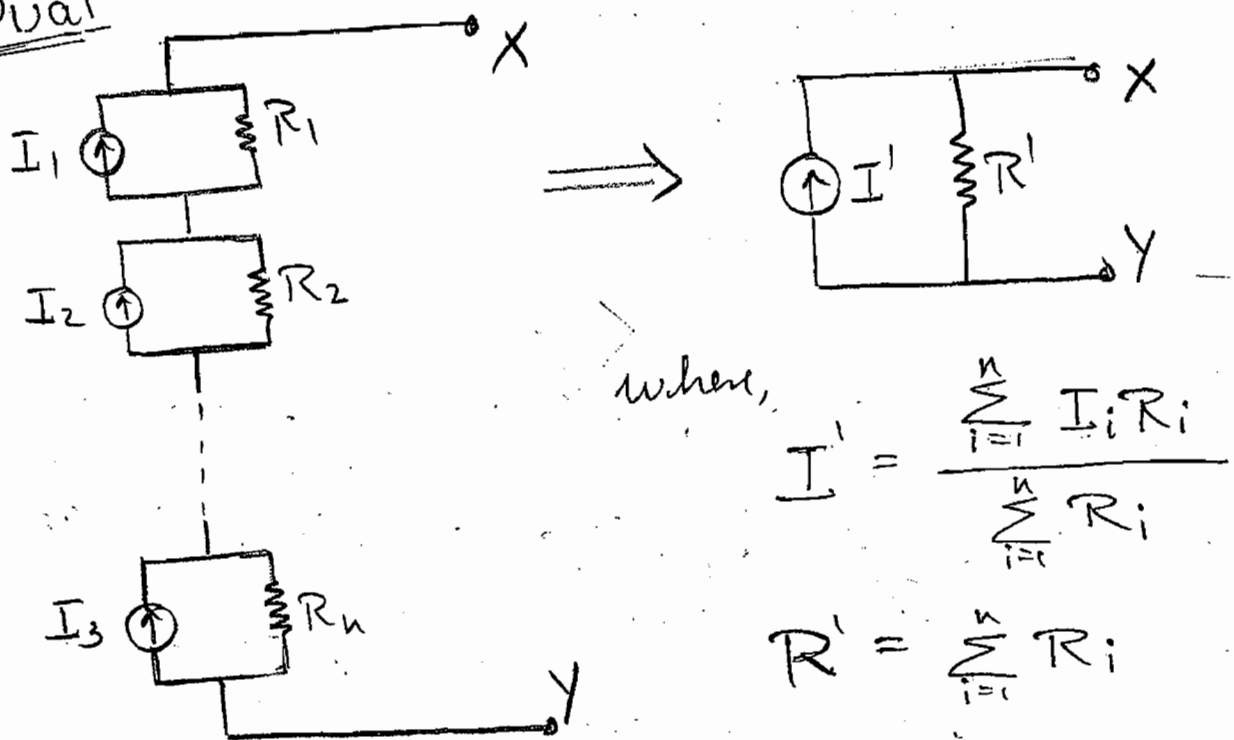 Dual
X
I₁ R₁
I₂ R₂
I₃ Rₙ
Y
⟹
X
I' R'
Y
where,
I' = \frac{\sum_{i=1}^{n} I_i R_i}{\sum_{i=1}^{n} R_i}
R' = \sum_{i=1}^{n} R_i